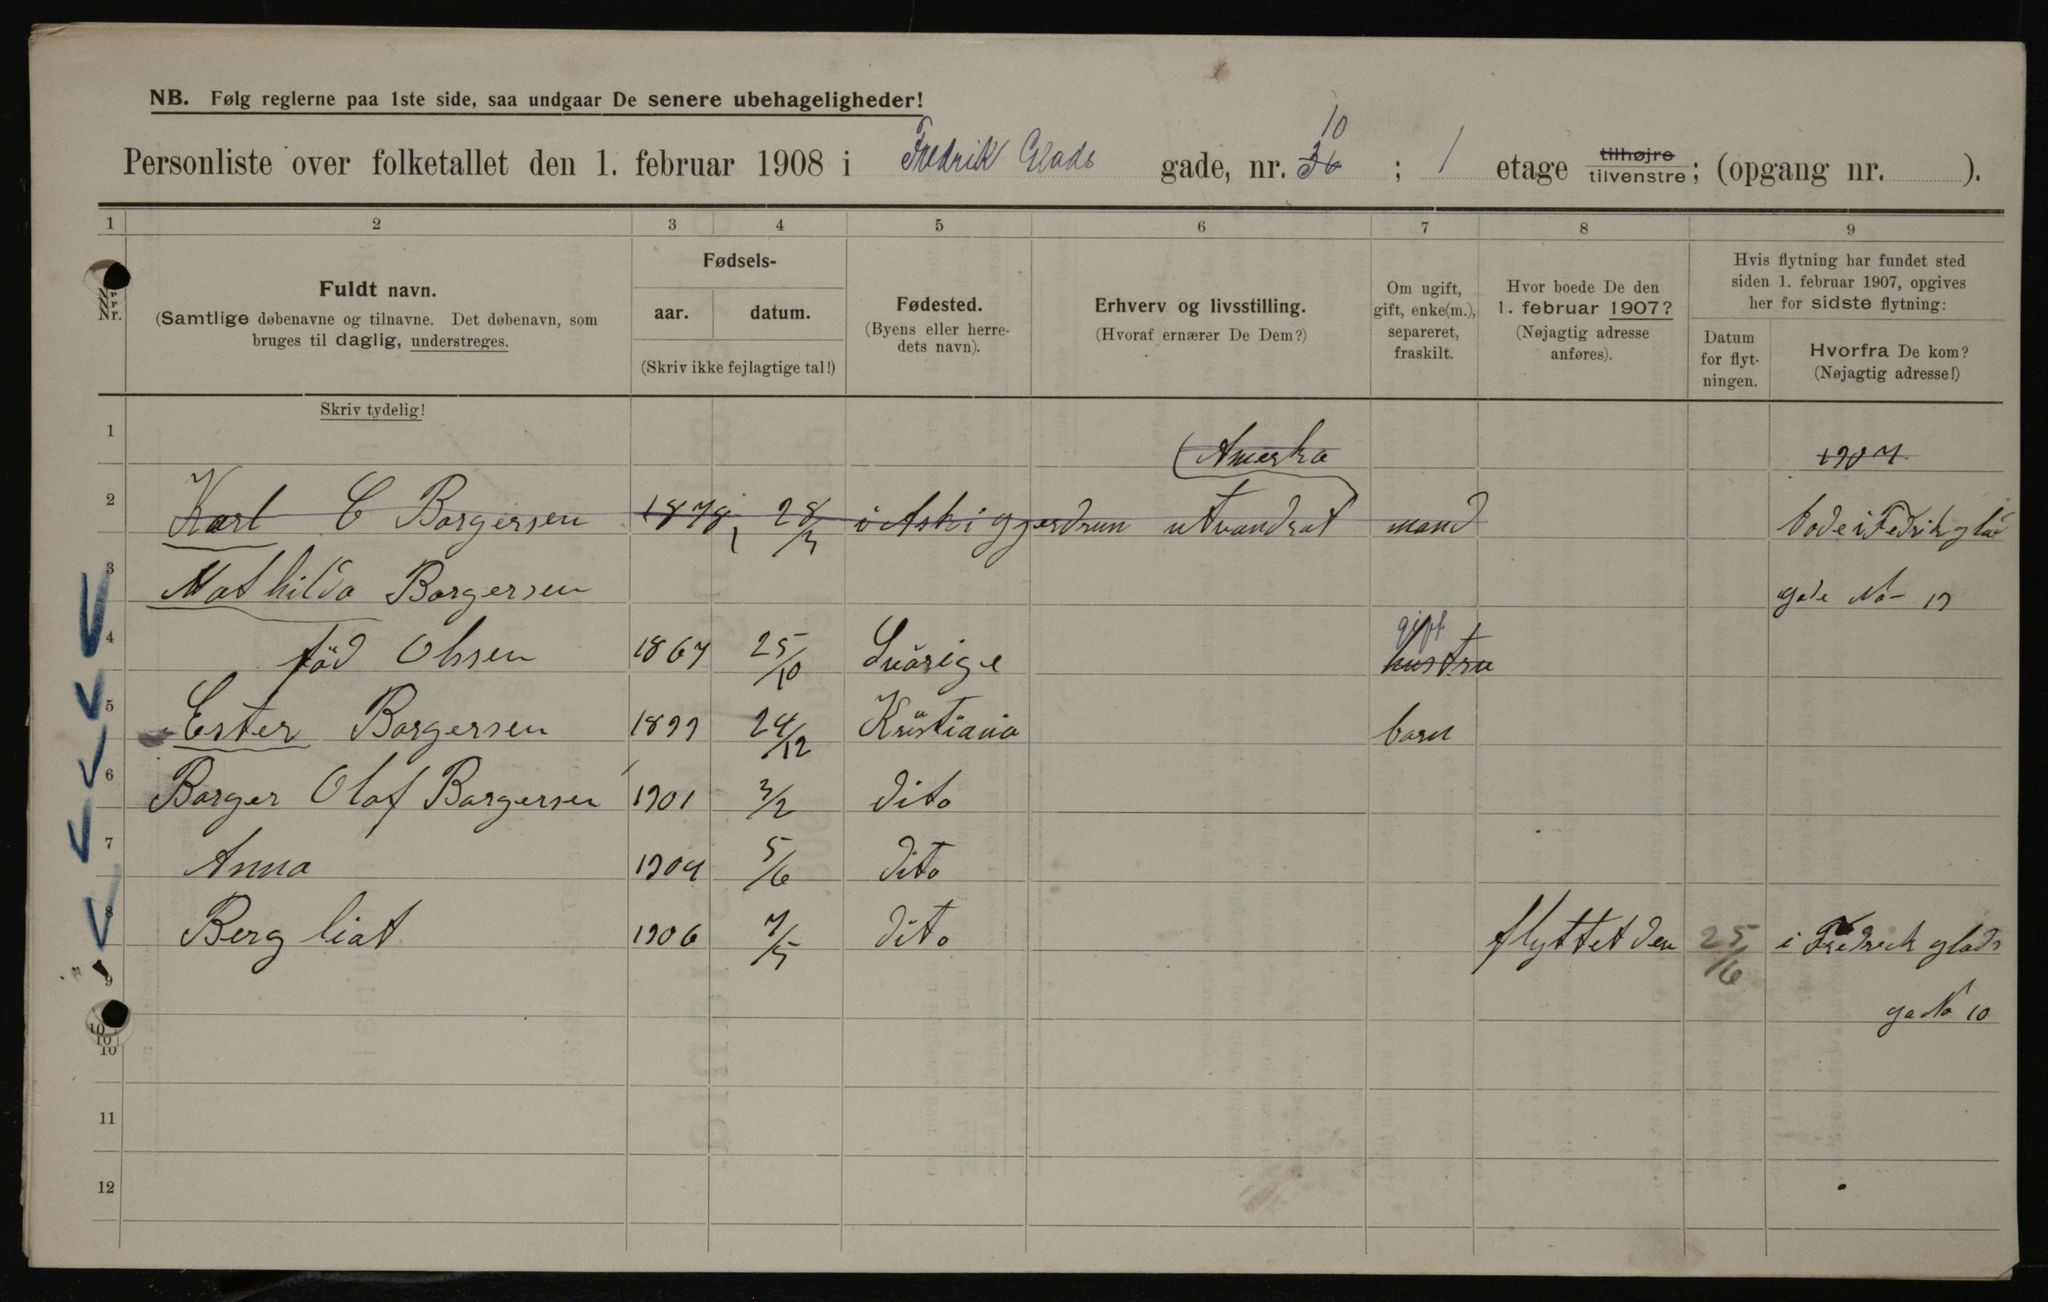 NB. Følg reglerne paa 1ste side, saa undgaar De senere ubehageligheder!
10
Personliste over folketallet den 1. februar 1908 i Fredrik Glads gade, nr. ; 1 etage tilhøjre tilvenstre; (opgang nr. ).
1 2 3 4 5 6 7 8 9
Nr. Fuldt navn.
(Samtlige døbenavne og tilnavne. Det døbenavn, som
bruges til daglig, understreges.
Skriv tydelig!
Fødsels-
aar. datum.
(Skriv ikke fejlagtige tal!)
Fødested.
(Byens eller herre-
dets navn).
Erhverv og livsstilling.
(Hvoraf ernærer De Dem?)
Om ugift,
gift, enke(m.),
separeret,
fraskilt.
Hvor boede De den
1. februar 1907?
(Nøjagtig adresse
anføres).
Hvis flytning har fundet sted
siden 1. februar 1907, opgives
her for sidste flytning:
Datum
for flyt-
ningen.
Hvorfra De kom?
(Nøjagtig adresse!)
1 (Amerka 1907
2 Karl C Borgersen 1878 28/3 i Aski gjerdrum utvandrat mand bode i Fedrik glad
3 Mathilda Borgersen gade No 17
4 föd Olssen 1867 25/10 Svärige gift hustru
5 Ester Borgersen 1899 24/12 Kristiania barn
6 Borger Olaf Borgersen 1901 3/2 dito
7 Anna 1904 5/6 dito
8 Bergliat 1906 7/5 dito flyttet den 25/6 i Fredrick glads
9 ga No 10
10
10
10
11
12